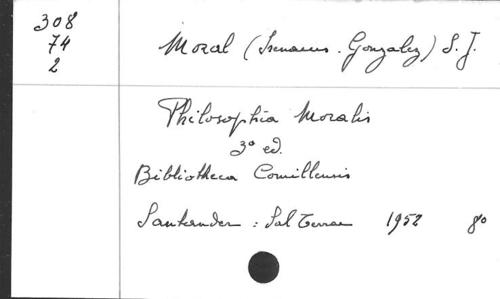 308
74
2
Moral (Irenaeus. Gonzalez) S. J.
Philosophia Moralis
3ª ed.
Bibliotheca Comillensis
Santander : Sal Terrae 1952 8º